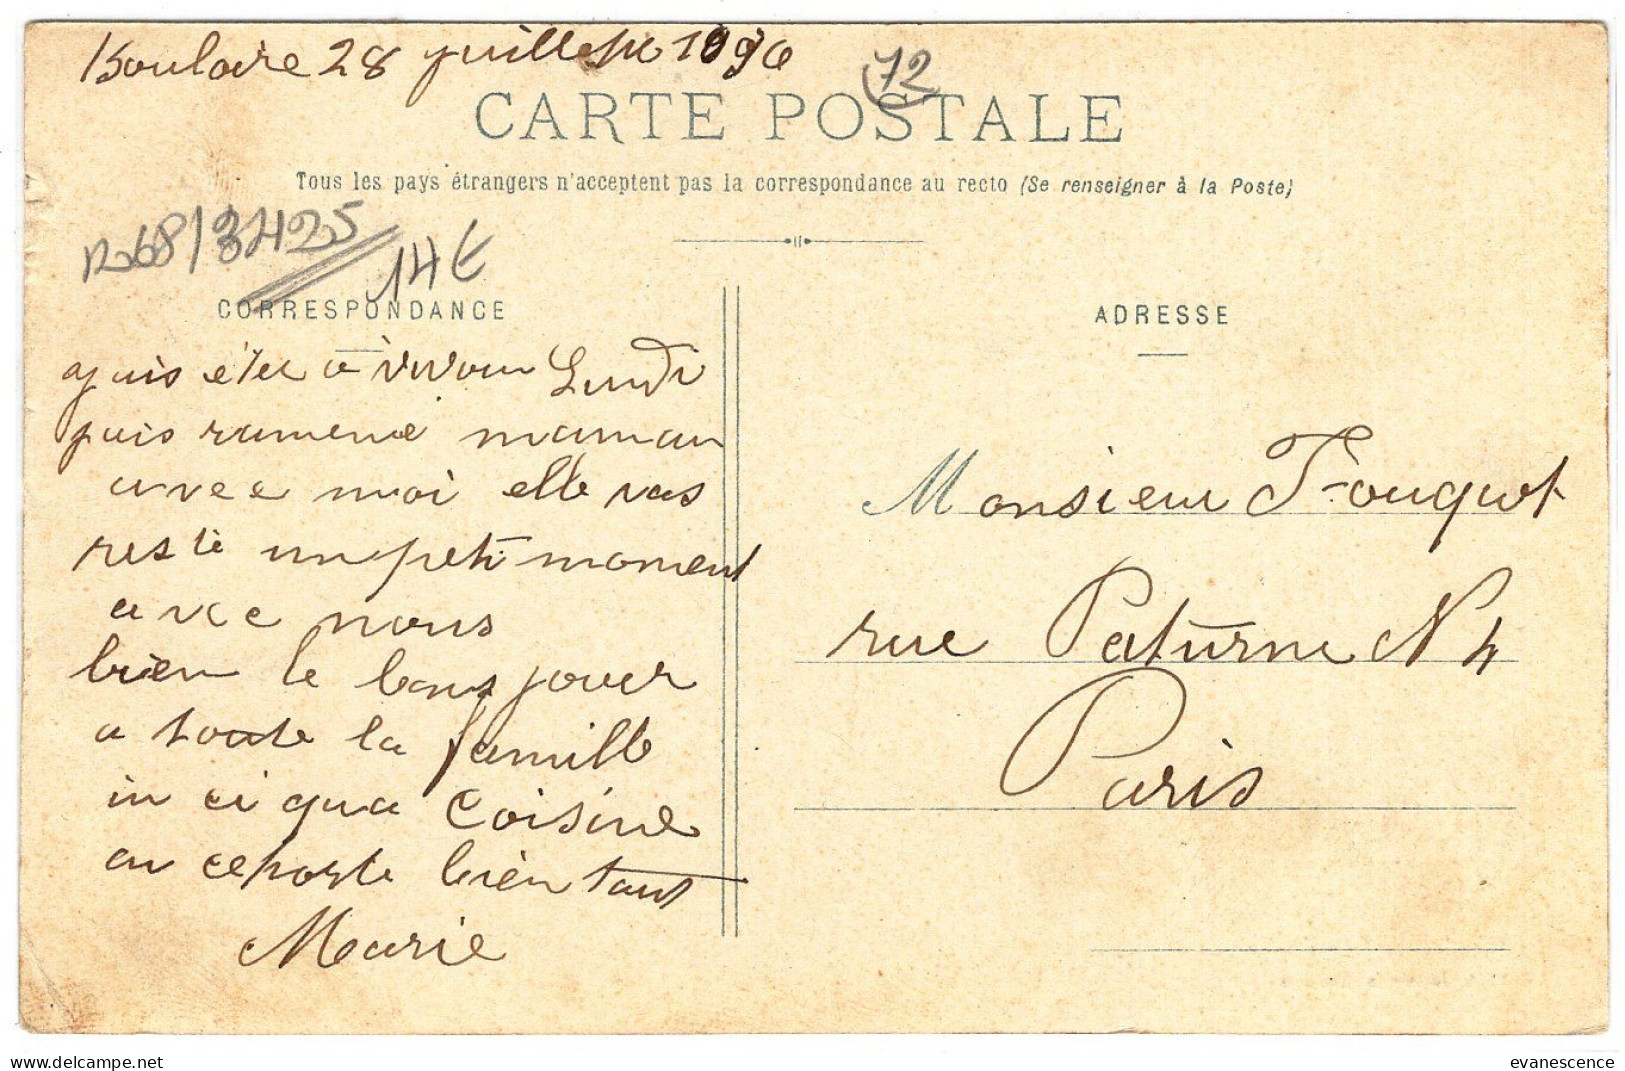 Boulaire 28 juillette 1906
72
CARTE POSTALE
Tous les pays étrangers n'acceptent pas la correspondance au recto (Se renseigner à la Poste)
R68/3425
14€
CORRESPONDANCE
ADRESSE
juis étée a Lundi
juis ramené maman
avece moi elle vas
resté un peti moment
avec nous
bien le bons jouer
a toute la famille
in ci qua Coisine
on ce porte bien tous
Marie
Monsieur Fouquet
rue Paturne N 4
Paris
www.delcampe.net
evanescence